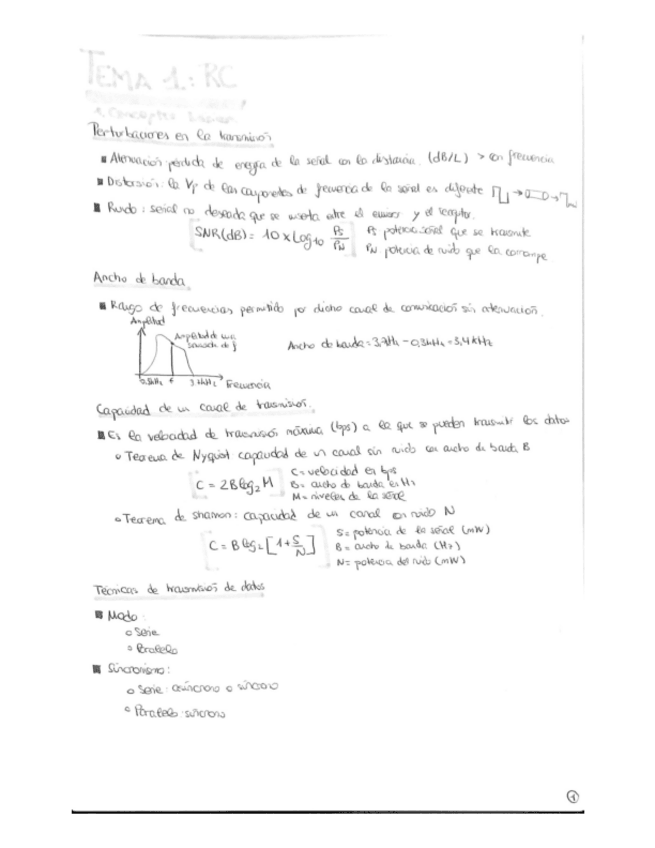 TEMA 1: RC
1. Conceptos básicos
Perturbaciones en la transmisión
■ Atenuación: pérdida de energía de la señal con la distancia. (dB/L) > con frecuencia
■ Distorsión: la Vp de las componentes de frecuencia de la señal es diferente
■ Ruido: señal no deseada que se inserta entre el emisor y el receptor.
SNR(dB) = 10 x Log10 Ps/PN Ps potencia señal que se transmite
PN potencia de ruido que la corrompe
Ancho de banda
■ Rango de frecuencias permitido por dicho canal de comunicación sin atenuación.
Amplitud
Amplitud de una
senoide de f
Ancho de banda = 3,7kHz - 0,3kHz = 3,4kHz
0.3kHz f 3.7kHz Frecuencia
Capacidad de un canal de transmisión.
■ Es la velocidad de transmisión máxima (bps) a la que se pueden transmitir los datos
o Teorema de Nyquist capacidad de un canal sin ruido con ancho de banda B
C = 2B log2 M C = velocidad en bps
B = ancho de banda en Hz
M = niveles de la señal
o Teorema de shannon: capacidad de un canal con ruido N
C = B log2 [1 + S/N] S = potencia de la señal (mW)
B = ancho de banda (Hz)
N = potencia del ruido (mW)
Técnicas de transmisión de datos
■ Modo:
o Serie
o Paralelo
■ Sincronismo:
o Serie: asíncrono o síncrono
o Paralelo: síncrono
1